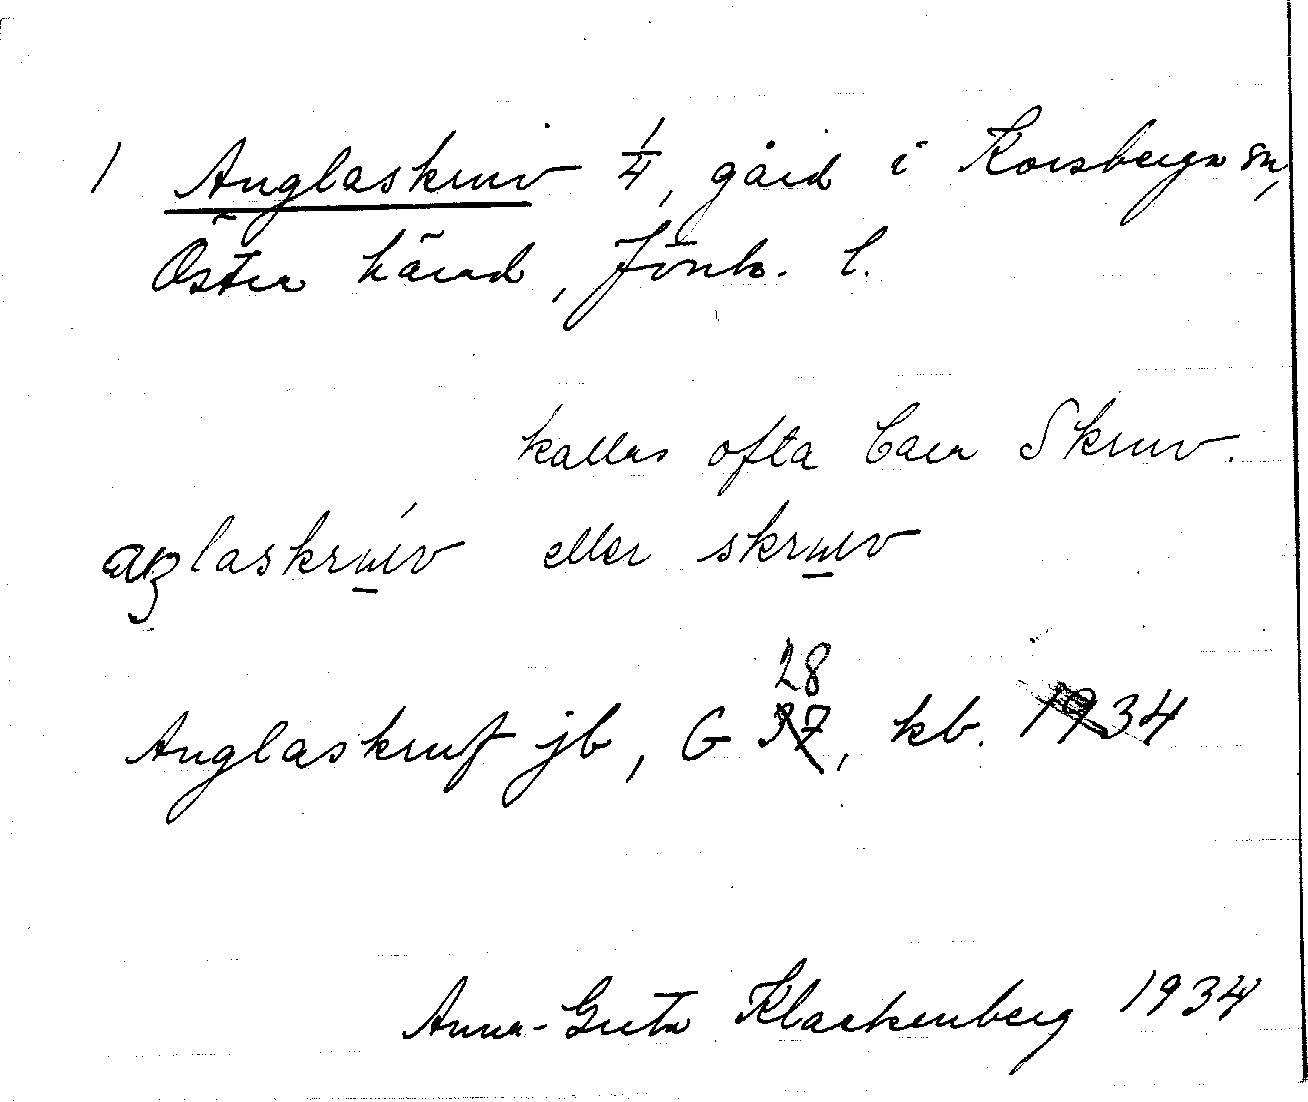 1 Anglaskruv 1/4, gård i Korsberga sn,
Östra härad, Jönk. l.
kallas ofta bara Skruv.
laskruv eller skruv
28
Anglaskruf jb, G 37, kb. 1934
Anna-Greta Klackenberg 1934